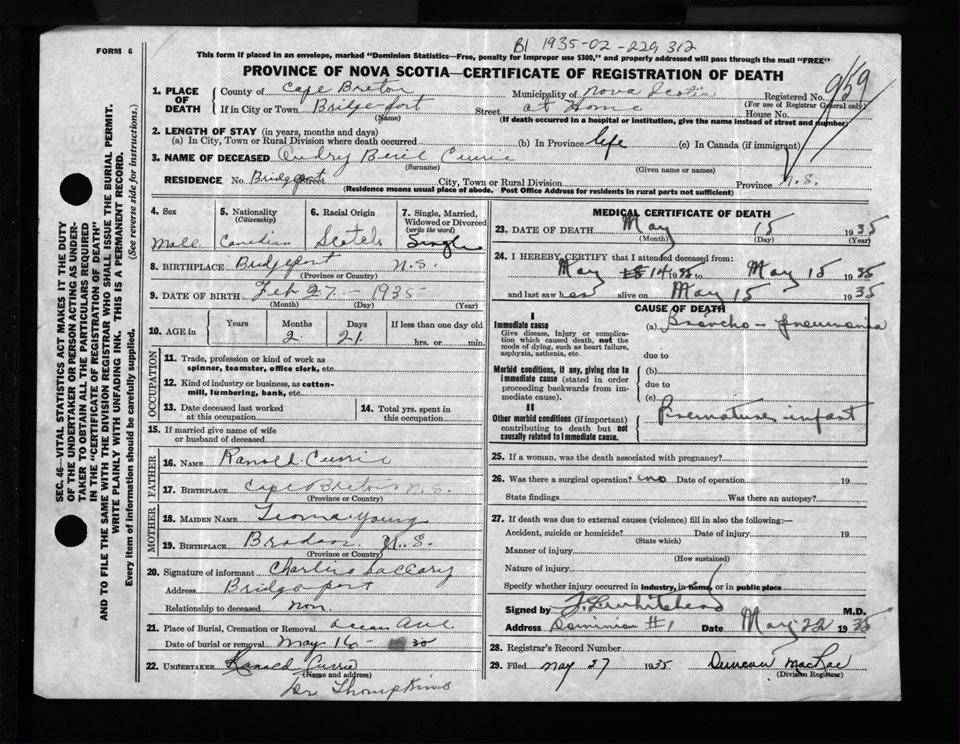 B1 1935-02-229,312
FORM 6
This form if placed in an envelope, marked "Dominion Statistics—Free, penalty for improper use $300," and properly addressed will pass through the mail "FREE"
PROVINCE OF NOVA SCOTIA—CERTIFICATE OF REGISTRATION OF DEATH
1. PLACE OF DEATH
County of Cape Breton Municipality of Nova Scotia Registered No. 959
(For use of Registrar General only)
If in City or Town Bridgeport Street at Home House No.
(Name)
(If death occurred in a hospital or institution, give the name instead of street and number)
2. LENGTH OF STAY (in years, months and days)
(a) In City, Town or Rural Division where death occurred (b) In Province life (c) In Canada (if immigrant)
3. NAME OF DECEASED Audry Beril Currie
(Surname) (Given name or names)
RESIDENCE No. Bridgeport Street City, Town or Rural Division Province N.S.
(Residence means usual place of abode. Post Office Address for residents in rural parts not sufficient)
4. Sex
Male
5. Nationality (Citizenship)
Canadian
6. Racial Origin
Scotch
7. Single, Married, Widowed or Divorced (write the word)
Single
8. BIRTHPLACE Bridgeport N.S.
(Province or Country)
9. DATE OF BIRTH Feb 27 - 1935
(Month) (Day) (Year)
10. AGE in Years Months Days If less than one day old
2 21 hrs. or min.
OCCUPATION
11. Trade, profession or kind of work as spinner, teamster, office clerk, etc.
12. Kind of industry or business, as cotton-mill, lumbering, bank, etc.
13. Date deceased last worked at this occupation
14. Total yrs. spent in this occupation
15. If married give name of wife or husband of deceased
FATHER
16. NAME Ranold Currie
17. BIRTHPLACE Cape Breton N.S.
(Province or Country)
MOTHER
18. MAIDEN NAME Leona Young
19. BIRTHPLACE N.S.
(Province or Country)
20. Signature of informant Charlie
Address Bridgeport
Relationship to deceased non
21. Place of Burial, Cremation or Removal Ocean Ave
Date of burial or removal May 16 - 35
22. UNDERTAKER Ranold Currie
(Name and address)
Dr Thompkins
MEDICAL CERTIFICATE OF DEATH
23. DATE OF DEATH May 15 1935
(Month) (Day) (Year)
24. I HEREBY CERTIFY that I attended deceased from:
May 14 1935 to May 15 1935
and last saw h alive on May 15 1935
CAUSE OF DEATH
I
Immediate cause
Give disease, injury or complication which caused death, not the mode of dying, such as heart failure, asphyxia, asthenia, etc.
(a) Broncho - pneumonia
due to
Morbid conditions, if any, giving rise to immediate cause (stated in order proceeding backwards from immediate cause).
(b)
due to
(c)
II
Other morbid conditions (if important) contributing to death but not causally related to immediate cause.
Premature infant
25. If a woman, was the death associated with pregnancy?
26. Was there a surgical operation? no Date of operation 19
State findings Was there an autopsy?
27. If death was due to external causes (violence) fill in also the following:
Accident, suicide or homicide? Date of injury 19
(State which)
Manner of injury
(How sustained)
Nature of injury
Specify whether injury occurred in industry, in home, or in public place
Signed by Whitehead M.D.
Address Dominion #1 Date May 22 1935
28. Registrar's Record Number
29. Filed May 27 1935 Duncan MacRae
(Division Registrar)
SEC. 46—VITAL STATISTICS ACT MAKES IT THE DUTY
OF THE UNDERTAKER OR PERSON ACTING AS UNDER-
TAKER TO OBTAIN ALL THE PARTICULARS REQUIRED
IN THE "CERTIFICATE OF REGISTRATION OF DEATH"
AND TO FILE THE SAME WITH THE DIVISION REGISTRAR WHO SHALL ISSUE THE BURIAL PERMIT.
WRITE PLAINLY WITH UNFADING INK. THIS IS A PERMANENT RECORD.
Every item of information should be carefully supplied. (See reverse side for instructions.)